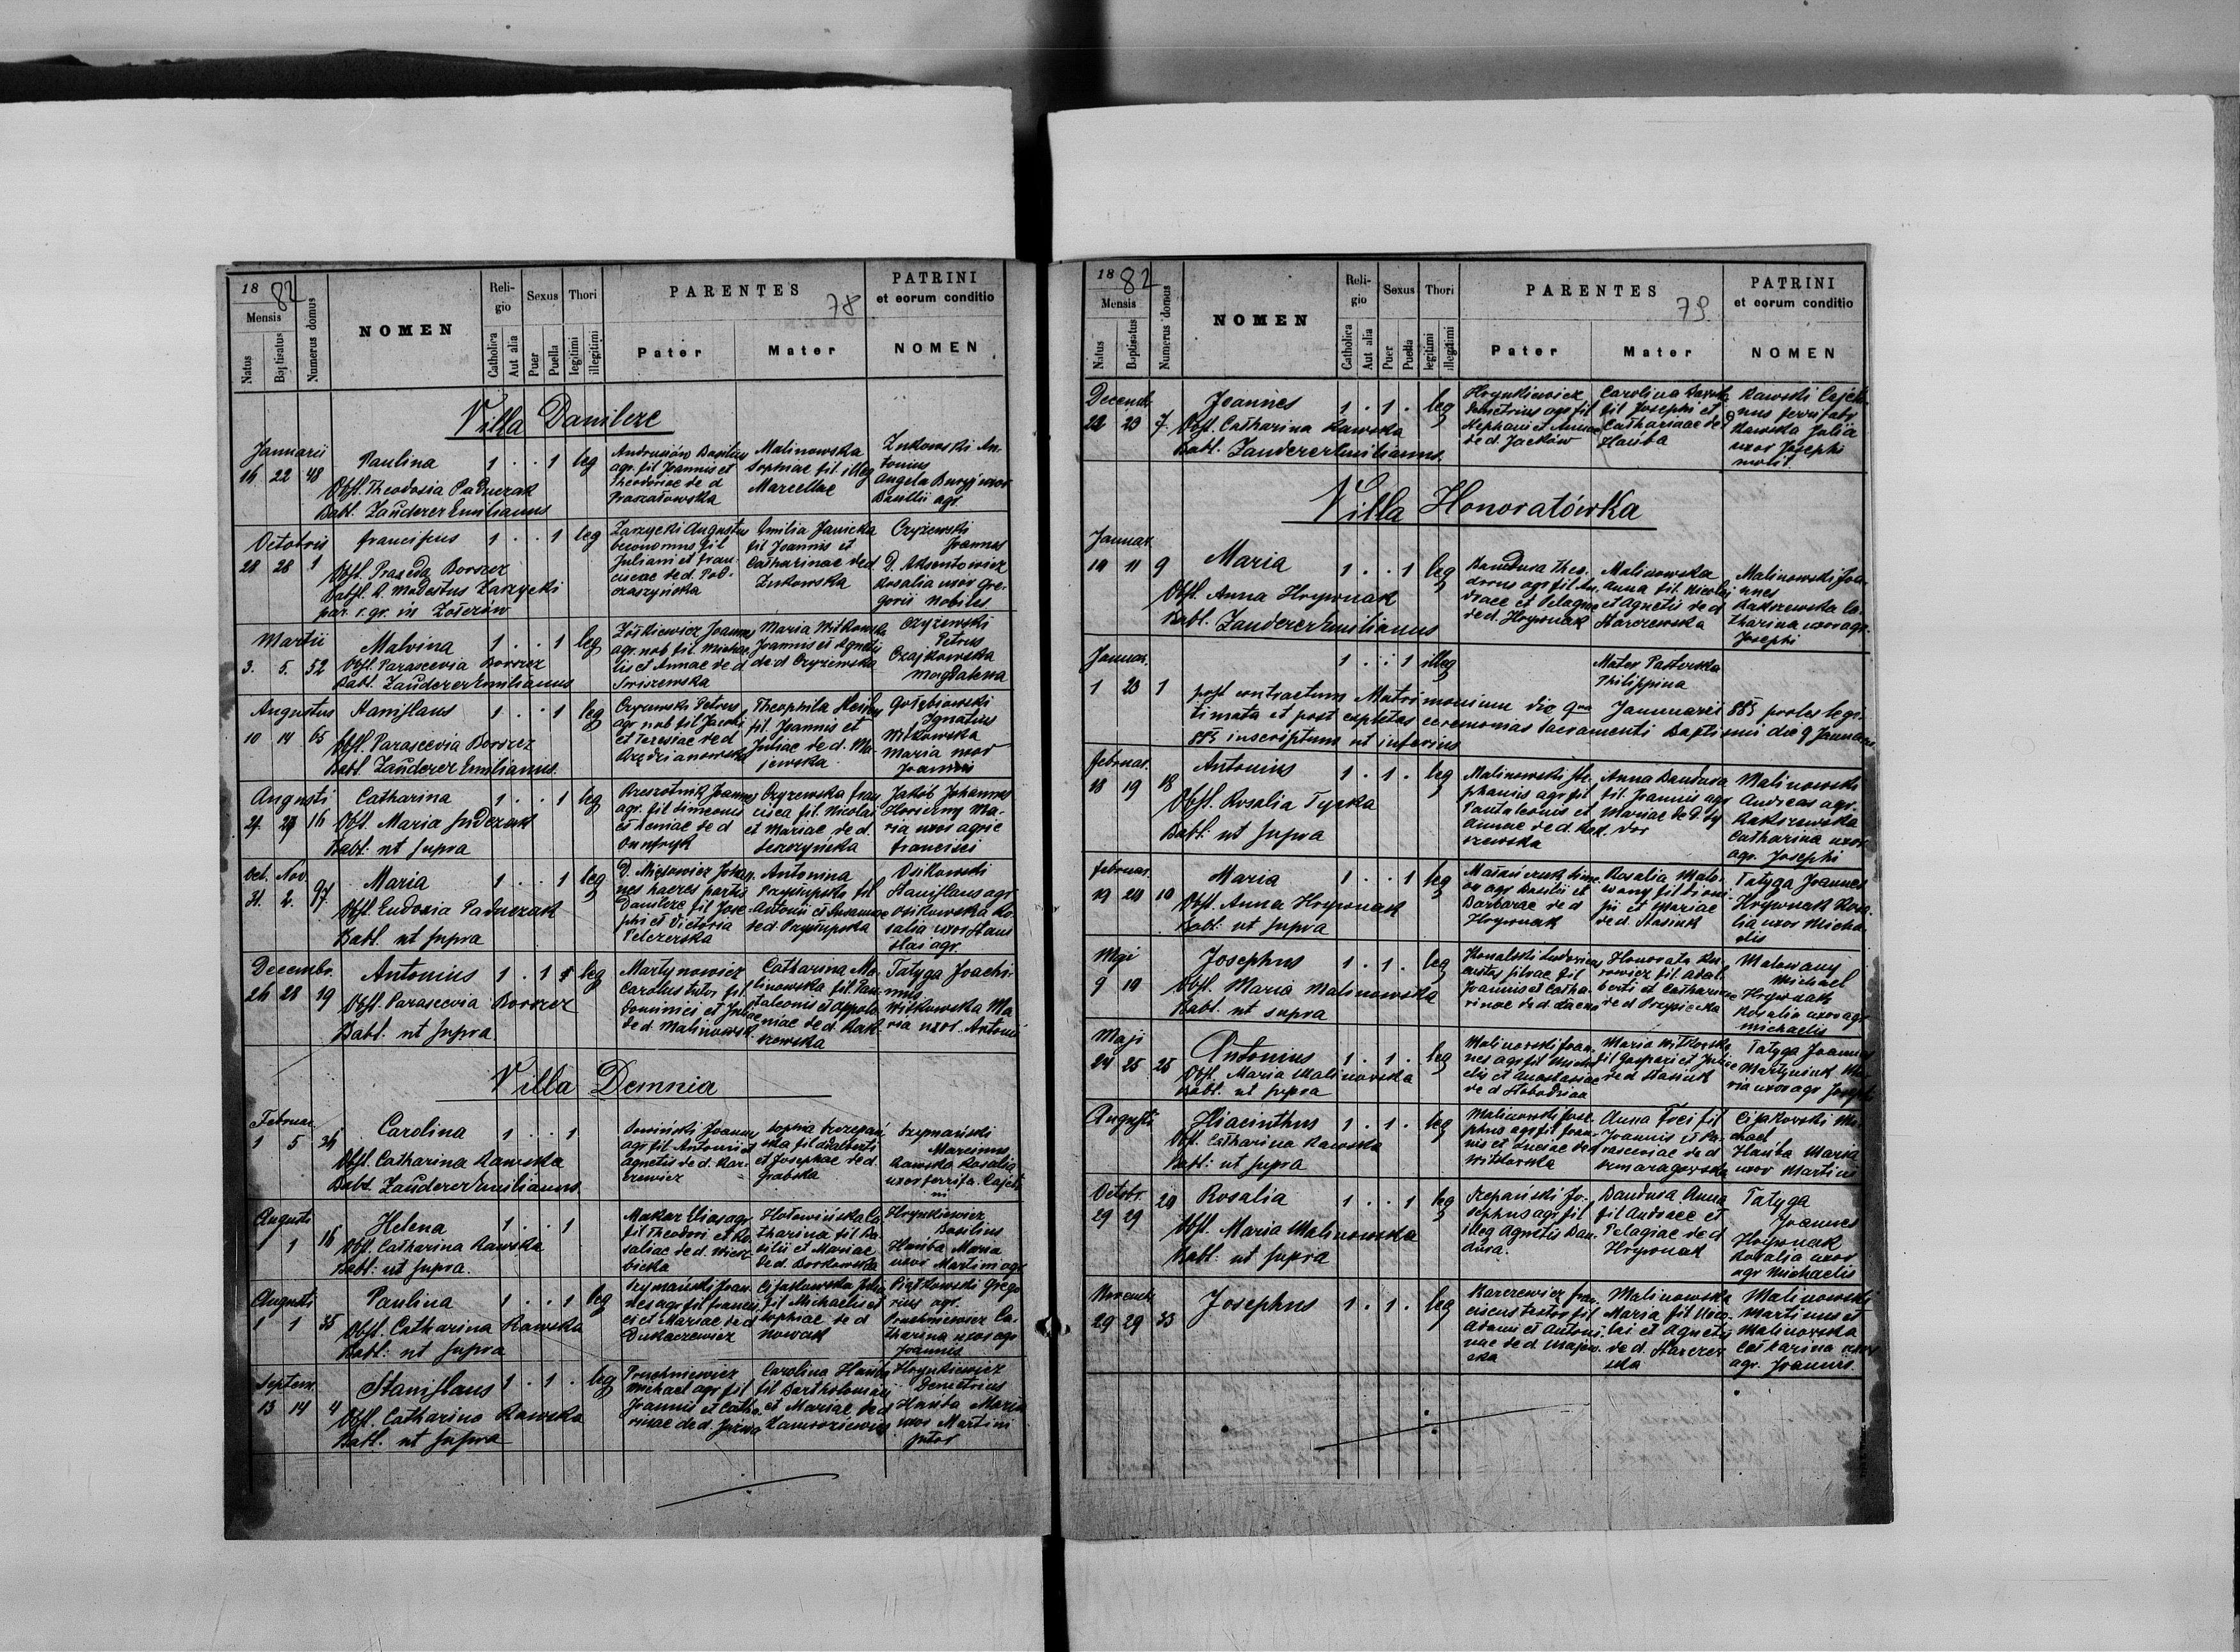 18 82
Mensis
Natus
Baptisatus
Numerus domus
NOMEN
Reli-
gio
Catholica
Aut alia
Sexus
Puer
Puella
Thori
legitimi
illegitimi
PARENTES
78
Pater
Mater
PATRINI
et eorum conditio
NOMEN
Villa Danilcze
Januarii
16 22 48
Paulina
Obst. Theodosia Paduczak
Babt. Zauderer Emilianus
1 . . 1 leg
Andrusiów Basilius
agr. fil Joannis et
Theodosiae de d
Malinowska
Sophiae fil illeg
Marcellae
Zukowski An-
tonius
Angela Buryj uxor
Basilii agr
Octobris
28 28 1
Franciscus
Obst. Praxeda Borszcz
Babst. R. Modestus Zarzycki
par. r. gr. in
1 . . 1 leg
Zarzycki Augustus
oeconomus fil
Juliani et Fran-
ciscae de d. Pod-
oraszyńska
Emilia Janicka
fil Joannis et
Catharinae de d
Zukowska
Czyżewski
Joannes
D. Aksentowicz
Rosalia uxor Gre-
gorii nobiles
Martii
3. 5. 52
Malvina
Obst. Parascevia Borszcz
Babt. Zauderer Emilianus
1 . . 1 leg
Joannes
agr. nob fil. Michae
lis et Annae de d
Maria Witkowska
Joannis et Agnetis
de d Czyżewska
Czyżewski
Petrus
Czajkowska
Magdalena
Augustus
10 14 65
Stanislaus
Obst. Parascevia Borszcz
Babt. Zauderer Emilianus.
1 . . 1 leg
Czyzewski Petrus
agr nob fil Jacobi
et Teresiae de d
Theophila
fil. Joannis et
Juliae de d. Ma-
jewska
Gołębiowski
Ignatius
Witkowska
Maria uxor
Joannis
Augusti
16
Catharina
Obst. Maria
Babt: ut supra
1 . . 1 leg
Joannes
agr. fil Simeonis
et Xeniae de d
Onufryk
Czyzewska Fran
cisca fil. Nicolai
et Mariae de d.
Jakob Johannes
Ma-
ria uxor agric
Francisci
Oct. Nov.
31. 2. 97
Maria
Obst. Eudoxia Paduczak
Babt. ut supra
1 . . 1 leg
D. Johan-
nes haeres partis
Danilcze fil Jose-
phi et Victoria
Pelczerska
Antonina
Przyłupska fil
Antonii et Susannae
de d. Przyłupska
Osikowski
Stanislaus agr
Osikowska Ro-
salia uxor Stanis
lai agr
Decembr.
26 28 19
Antonius
Obst. Parascevia Borszcz
Babt. ut supra.
1 . 1 leg
Martynowicz
Carolus fil
Dominici et Juliae
de d. Malinowsk.
Catharina Ma-
linowska fil. Pan-
taleonis et Appolo-
niae de d. Rak-
szewska
Tatyga Joachi-
mus
Witkowska Ma-
ria uxor Antonii
Villa Demnia
Februar.
1 5 26
Carolina
Obst. Catharina Rawska
Babt. Zauderer Emilianus.
1 . . 1
Joannes
agr fil Antonii et
Agnetis de d. Kar-
czewicz
Sophia Szczepań
ska fil Adalberti
et Josephae de d.
Grabska
Szymański
Marcinus
Rawska Rosalia
uxor ferrifa. Cajeta
ni
Augusti
1 1 16
Helena
Obst. Catharina Rawska
Babt: ut supra.
1 . . 1
Makar Elias agr
fil Theodori et Ro-
saliae de d. Wierz-
bicka
Hołowińska Ca
tharina fil Ba-
silii et Mariae
de d. Borkowska
Hrynkiewicz
Basilius
Hańba Maria
uxor Martini agr
Augusti
1 1 35
Paulina
Obst. Catharina Rawska
Babt: ut supra
1 . . 1 leg
Szymański Joan-
nes agr fil Francis
ci et Mariae de d
Dukaczewicz
Julia
fil Michaelis et
Sophiae de d
Nowak
Piątkowski Grego
rius agr.
Ca-
tharina uxor agr
Joannis
Septem.
13 14 4
Stanislaus
Obst. Catharina Rawska
Babt. ut supra
1 . 1 . leg
Michael agr fil
Joannis et Catha-
rinae de d.
Carolina Hańba
fil Bartholomaei
et Mariae de d
Hrynkiewicz
Demetrius
Hańba Maria
uxor Martini
sutor
18 82
Mensis
Natus
Baptisatus
Numerus domus
NOMEN
Reli-
gio
Catholica
Aut alia
Sexus
Puer
Puella
Thori
legitimi
illegitimi
PARENTES
79.
Pater
Mater
PATRINI
et eorum conditio
NOMEN
Decemb.
22 23 7
Joannes
Obst. Catharina Rawska
Babt. Zauderer Emilianus.
1 . 1 . leg
Hrynkiewicz
Demetrius agr fil
Stephani et Annae
de d. Jacków
Carolina
fil Josephi et
Catharinae de d
Hańba
Rawski Cajeta-
nus ferrifabr
Rawska Julia
uxor Josephi
molit.
Villa Honoratówka
Januar.
10 11 9
Maria
Obst. Anna Hrywnak
Babt. Zauderer Emilianus
1 . . 1 leg
Bandura Theo-
dorus agr fil An-
dreae et Pelagiae
de d. Hrywnak
Malinowska
Anna fil. Nicolai
et Agnetis de d
Starczewska
Malinowski Joa-
nnes
Rakszewska Ca-
tharina uxor agr.
Josephi
Januar.
1 23 1
1 . . 1 illeg
Mater Pasterska
Philippina
post contractum Matrimonium die 9na Januarii 885 proles legi-
timata et post expletas ceremonias Sacramenti Baptismi die 9 Januarii
885 inscriptum ut inferius
Februar.
18 19 18
Antonius
Obst. Rosalia Tyrka
Babt: ut supra
1 . 1 . leg
Malinowski Ste-
phanus agr fil
Pantaleonis et
Annae de d. Rak-
szewska
Anna Bandura
fil. Joannis agr
et Mariae de d.
Malinowski
Andreas agr.
Rakszewska
Catharina uxor
agr. Josephi
Februar.
19 20 10
Maria
Obst. Anna Hrywnak
Babt: ut supra
1 . . 1 leg
Sime-
on agr Basilii et
Barbarae de d
Hrywnak
Rosalia Malo-
wany fil Diony-
sii et Mariae
de d. Stasiuk
Tatyga Joannes
Hrywnak Rosa-
lia uxor Micha-
elis
Maji
9 10
Josephus
Obst. Maria Malinowska
Babt. ut supra
1 . 1 . leg
Kowalski Ludovicus
custos silvae fil
Joannis et Catha-
rinae de d.
Honorata
fil. Adal-
berti et Catharinae
de d
Malowany
Michael
Hrywnak
Rosalia uxor agr
Michaelis
Maji
24 25 25
Antonius
Obst. Maria Malinowska
Babt. ut supra
1 . 1 . leg
Malinowski Joan-
nes agr fil Micha-
elis et Anastasiae
de d Slobodzian
Maria Witkowska
fil Gaspari et Juliae
de d Stasiuk
Tatyga Joannes
Martyniuk Ma-
ria uxor agr Josephi
Augusti
Hiacinthus
Obst. Catharina Rawska
Babt: ut supra
1 . 1 . leg
Malinowski Jose-
phus agr fil Joan-
nis et Luciae de d
Witkowska
Anna
Joannis et Pa-
rasceviae de d
Szmaragowska
Mi-
chael
Hańba Maria
uxor Martini
Octobr.
29 29 20
Rosalia
Obst. Maria Malinowska
Babt. ut supra
1 . . 1 leg
Szepański Jo-
sephus agr fil
illeg Agnetis Ban-
dura.
Bandura Anna
fil Andreae et
Pelagiae de d
Hrywnak
Tatyga
Joannes
Hrywnak
Rosalia uxor
agr Michaelis
Novemb.
29 29 33
Josephus
1 . 1 . leg
Karczewicz Fran-
ciscus fil
Adami et Antoni-
nae de d. Majew-
ska
Malinowska
Maria fil Nico-
lai et Agnetis
de d. Starczew
ska
Malinowski
Martinus et
Malinowska
Catharina uxor
agr. Joannis.